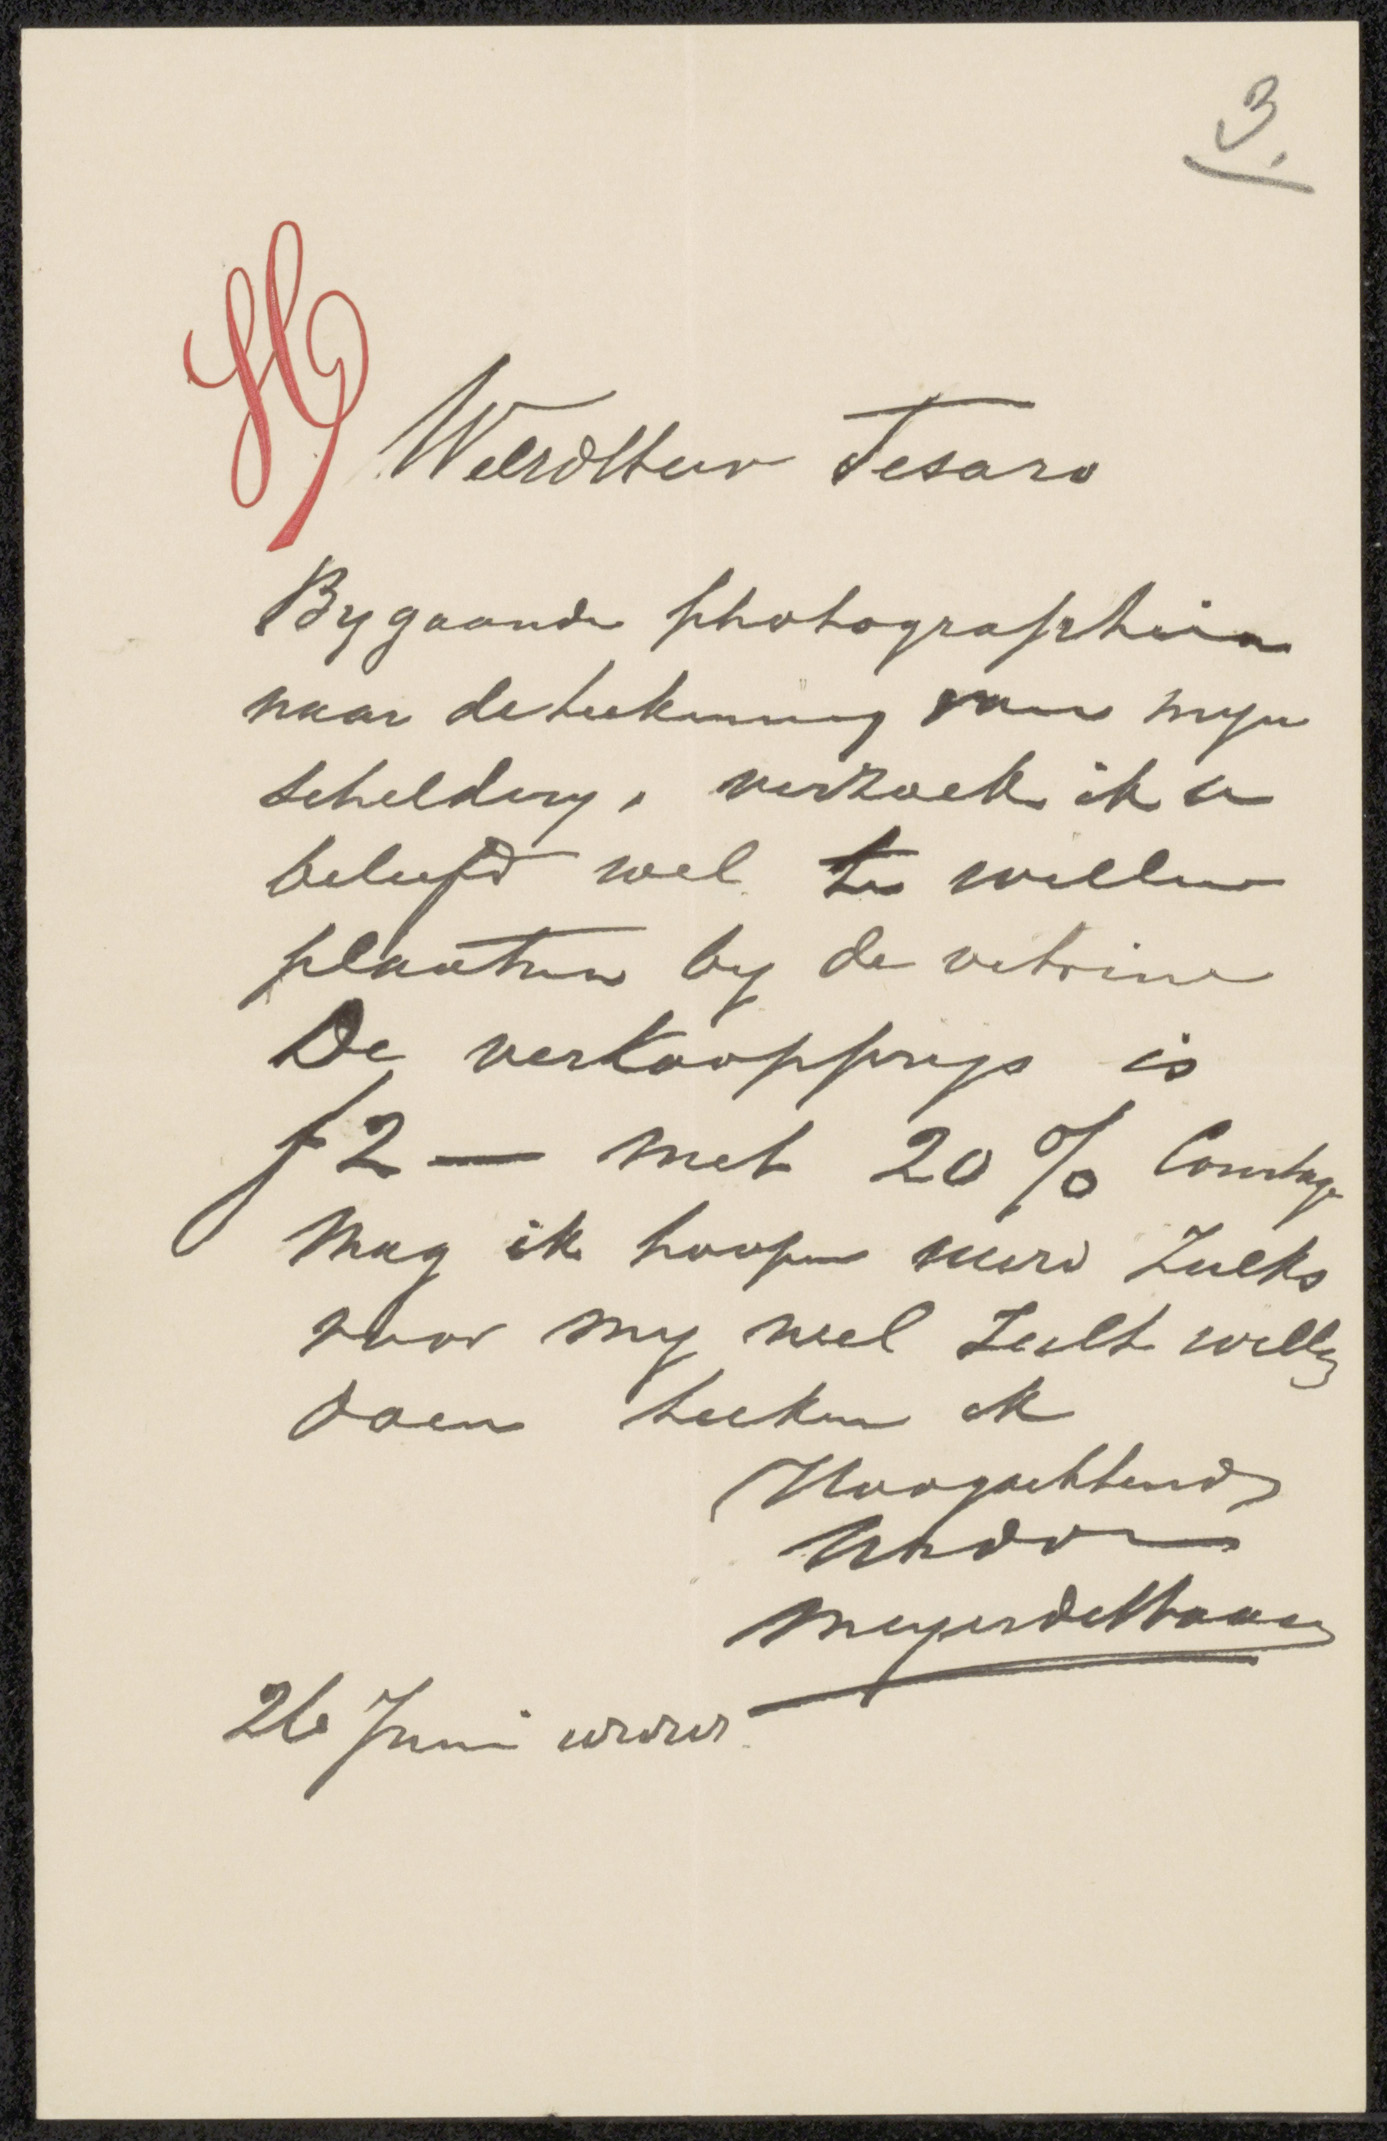 3.
H
WelEdHeer Tesaro
Bygaande photographiën
naar de teekening van myn
schildery, verzoek ik u
beleefd wel te willen
plaatsen by de vitrine
De verkoopprys is
f 2 — met 20 % Courtage
Mag ik hoopen UEed Zulks
voor my wel zult willen
doen teeken ik
Hoogachtend
UEdDr
Meyer de Haan
26 Juni